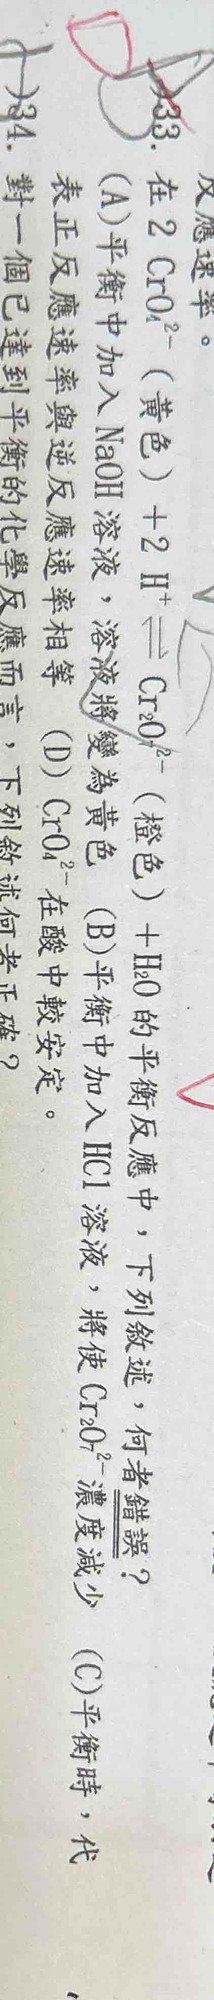 反應速率。
( )33. 在 2 CrO₄²⁻（黃色）＋2 H⁺⇌Cr₂O₇²⁻（橙色）＋H₂O 的平衡反應中，下列敘述，何者錯誤？
(A)平衡中加入 NaOH 溶液，溶液將變為黃色 (B)平衡中加入 HCl 溶液，將使 Cr₂O₇²⁻濃度減少 (C)平衡時，代
表正反應速率與逆反應速率相等 (D) CrO₄²⁻在酸中較安定。
( )34. 對一個已達到平衡的化學反應而言，下列敘述何者正確？